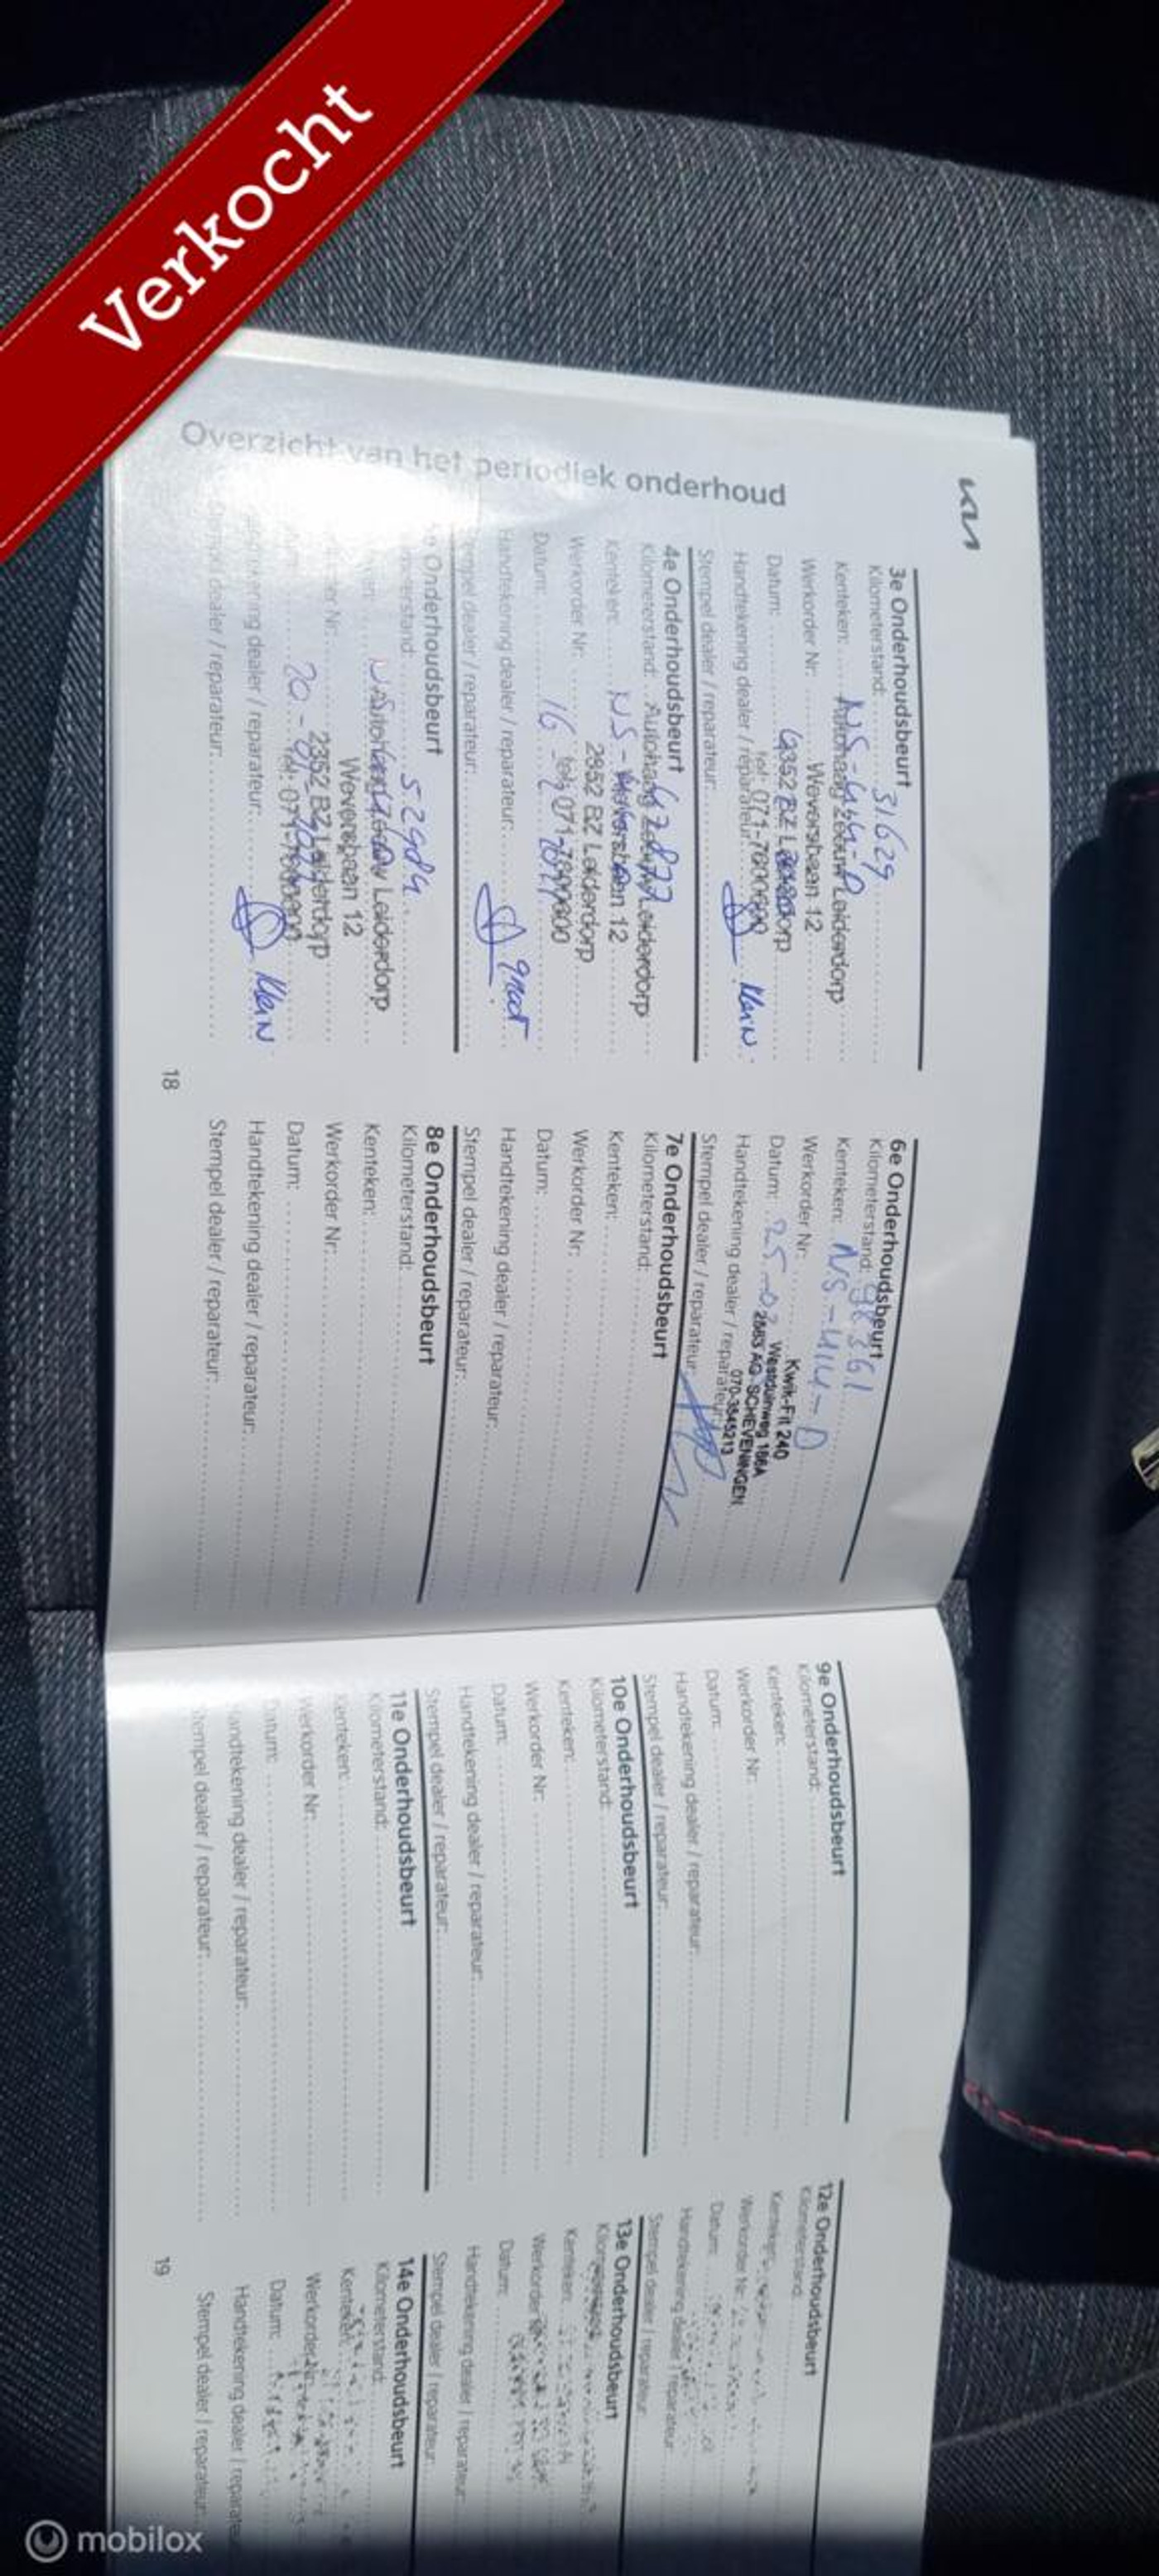 Verkocht
KIA
Overzicht van het periodiek onderhoud
3e Onderhoudsbeurt
Kilometerstand: 31629
Kenteken:
Autohaag Zeeuw Leiderdorp
Werkorder Nr:
Weversbaan 12
Datum:
2352 BZ Leiderdorp
Tel: 071-7600600
Handtekening dealer / reparateur: Klein
Stempel dealer / reparateur:
4e Onderhoudsbeurt
Kilometerstand:
Autohaag Zeeuw Leiderdorp
Kenteken: NS-
Weversbaan 12
Werkorder Nr:
2352 BZ Leiderdorp
Datum: 16
Tel: 071-
Handtekening dealer / reparateur: groot
Stempel dealer / reparateur:
Onderhoudsbeurt
52984
Leiderdorp
Weversbaan 12
2352 BZ Leiderdorp
20-
Tel: 071-
dealer / reparateur: Klein
dealer / reparateur:
6e Onderhoudsbeurt
Kilometerstand:
Kenteken: NS-414-D
Werkorder Nr:
Kwik-Fit 240
Datum: 25-02
Westduinweg 186A
2583 AG SCHEVENINGEN
Handtekening dealer / reparateur:
070-3545213
Stempel dealer / reparateur:
7e Onderhoudsbeurt
Kilometerstand:
Kenteken:
Werkorder Nr:
Datum:
Handtekening dealer / reparateur:
Stempel dealer / reparateur:
8e Onderhoudsbeurt
Kilometerstand:
Kenteken:
Werkorder Nr:
Datum:
Handtekening dealer / reparateur:
Stempel dealer / reparateur:
18
9e Onderhoudsbeurt
Kilometerstand:
Kenteken:
Werkorder Nr:
Datum:
Handtekening dealer / reparateur:
Stempel dealer / reparateur:
10e Onderhoudsbeurt
Kilometerstand:
Kenteken:
Werkorder Nr:
Datum:
Handtekening dealer / reparateur:
Stempel dealer / reparateur:
11e Onderhoudsbeurt
Kilometerstand:
Kenteken:
Werkorder Nr:
Datum:
Handtekening dealer / reparateur:
Stempel dealer / reparateur:
12e Onderhoudsbeurt
Kilometerstand:
Kenteken:
Werkorder Nr:
Datum:
Handtekening dealer / reparateur:
Stempel dealer / reparateur:
13e Onderhoudsbeurt
Kenteken:
Werkorder
Datum:
Handtekening dealer / reparateur:
Stempel dealer / reparateur:
14e Onderhoudsbeurt
Kilometerstand:
Kenteken:
Werkorder Nr:
Datum:
Handtekening dealer / reparateur
Stempel dealer / reparateur:
19
mobilox